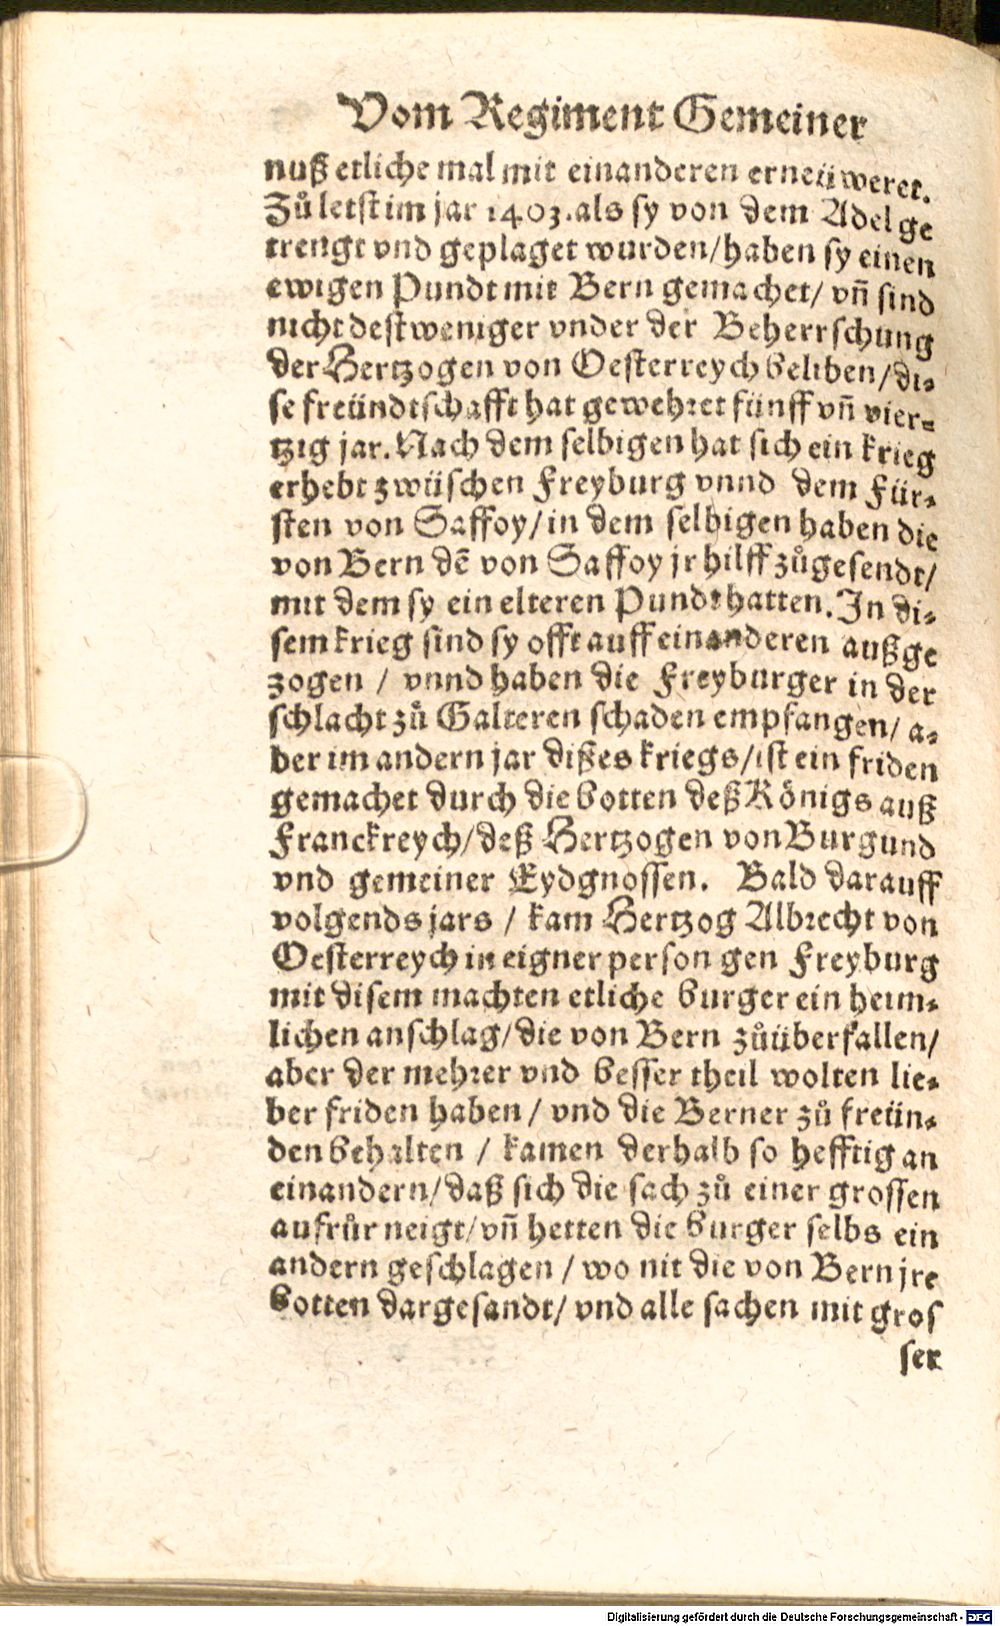 Vom Regiment Gemeiner
nuß etliche mal mit einanderen erneüweret.
Zů letst im jar 1403. als sy von dem Adel ge
trengt vnd geplaget wurden/ haben sy einen
ewigen Pundt mit Bern gemachet/ vñ sind
nicht destweniger vnder der Beherrschung
der Hertzogen von Oesterreych beliben/ di⸗
se freündtschafft hat gewehret fünff vñ vier⸗
tzig jar. Nach dem selbigen hat sich ein krieg
erhebt zwüschen Freyburg vnnd dem Für⸗
sten von Saffoy/ in dem selbigen haben die
von Bern dẽ von Saffoy jr hilff zůgesendt/
mit dem sy ein elteren Pundt hatten. In di⸗
sem krieg sind sy offt auff einanderen außge
zogen / vnnd haben die Freyburger in der
schlacht zů Galteren schaden empfangen/ a⸗
ber im andern jar dißes kriegs/ ist ein friden
gemachet durch die botten deß Königs auß
Franckreych/ deß Hertzogen von Burgund
vnd gemeiner Eydgnossen. Bald darauff
volgends jars / kam Hertzog Albrecht von
Oesterreych in eigner person gen Freyburg
mit disem machten etliche burger ein heim⸗
lichen anschlag/ die von Bern zůüberfallen/
aber der mehrer vnd besser theil wolten lie⸗
ber friden haben/ vnd die Berner zů freün⸗
den behalten / kamen derhalb so hefftig an
einandern/ daß sich die sach zů einer grossen
aufrůr neigt/ vñ hetten die burger selbs ein
andern geschlagen / wo nit die von Bern jre
botten dargesandt/ vnd alle sachen mit gros
ser
Digitalisierung gefördert durch die Deutsche Forschungsgemeinschaft - DFG